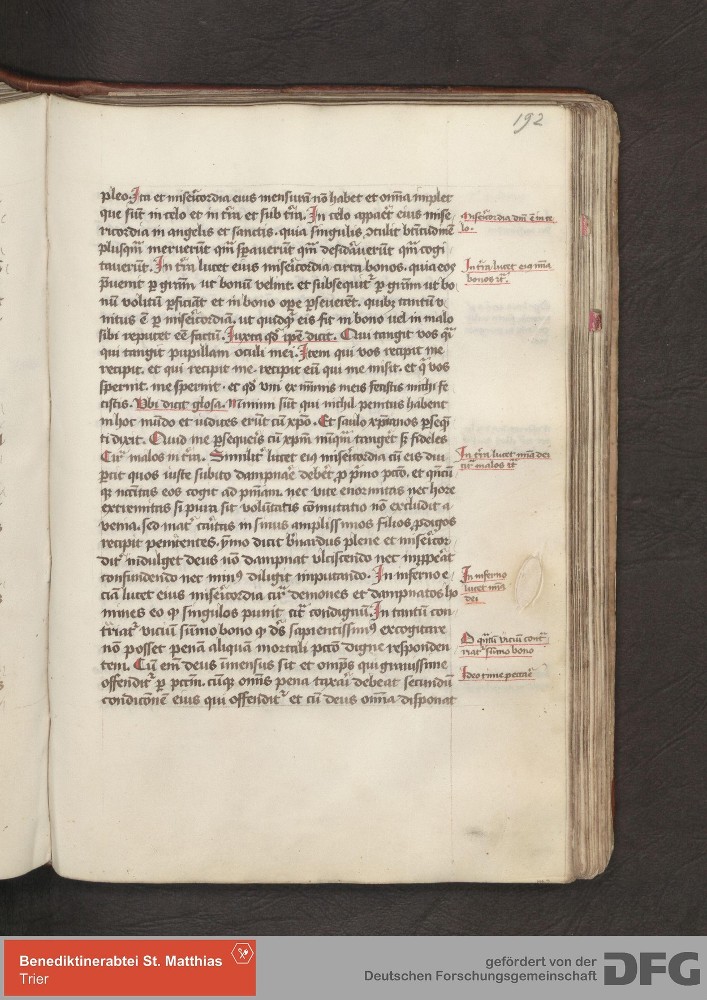 192
pleo. Ita et misericordia eius mensuram nō habet et om̄ia implet
que sūt in celo et in t̄ra et sub t̄ra. In celo apparet eius mise
ricordia in angelis et sanctis. quia singulis ꝯtulit beatitudinē
plusqm̄ meruerūt qm̄ sperauerūt qm̄ desiderauerūt qm̄ cogi
tauerūt. In t̄ra lucet eius misericordia circa bonos. quia eos
preuenit ꝑ gram̄ ut bonū velint. et subsequitr ꝑ gram̄ ut bo
nū volitū ꝑficiāt et in bono oꝑe ꝑseuerēt. quibꝫ tantū v
nitus ē ꝑ misericordiā. ut quidqd eis fit in bono vel in malo
sibi reputet eē factū. Iuxta qd ip̄e dicit. Qui tangit vos qi
qui tangit pupillam oculi mei. Item qui vos recipit me
recipit. et qui recipit me. recipit eū qui me misit. et q vos
spernit. me spernit. et qd vni ex minimis meis fecistis michi fe
cistis. Vbi dicit glosa. Minimi sūt qui nichil penitus habent
in hoc mūdo et iudices erūt cū xp̄o. Et saulo xp̄ianos ꝑseqe
ti dixit. Quid me ꝑsequeris cū xp̄m nūqm̄ tanget s fideles
Circa malos in t̄ra. Similiter lucet eiꝰ misericordia cū eis diu
ꝑcit quos iuste subito dampnare deberet ꝓ primo pctō. et qn̄cū
qꝫ necessitas eos cogit ad pn̄iam. nec vite enormitas nec hore
extremitas si pura sit volūtatis cōmutatio nō excludit a
venia. sed mater caritatis in sinus amplissimos filios ꝓdigos
recipit penitentes. ymo dicit bernardus plene et misericor
diter indulget deus nō dampnat vlciscendo nec improperat
confundendo nec minꝰ diligit imputando. In inferno e
ciā lucet eius misericordia circa demones et dampnatos ho
mines eo qꝫ singulos punit citra condignū. In tantū con
triatur viciū sūmo bono qꝫ ds sapientissimꝰ excogitare
nō posset penā aliquā mortali pctō digne responden
tem. Cū em̄ deus īmensus sit et omp̄s qui grauissime
offenditr ꝑ pctm̄. cūqꝫ omīs pena taxari debeat secundū
condicōnē eius qui offenditr et cū deus om̄ia disponat
Misericordia dni ē in ce
lo.
In t̄ra lucet eiꝰ mīa
bonos it.
In t̄ra lucet mīa dei
circa malos it
In inferno
lucet mīa
dei
O qtū viciū contr
riatr sūmo bono
Ideo time peccare
Benediktinerabtei St. Matthias
Trier
gefördert von der
Deutschen Forschungsgemeinschaft
DFG